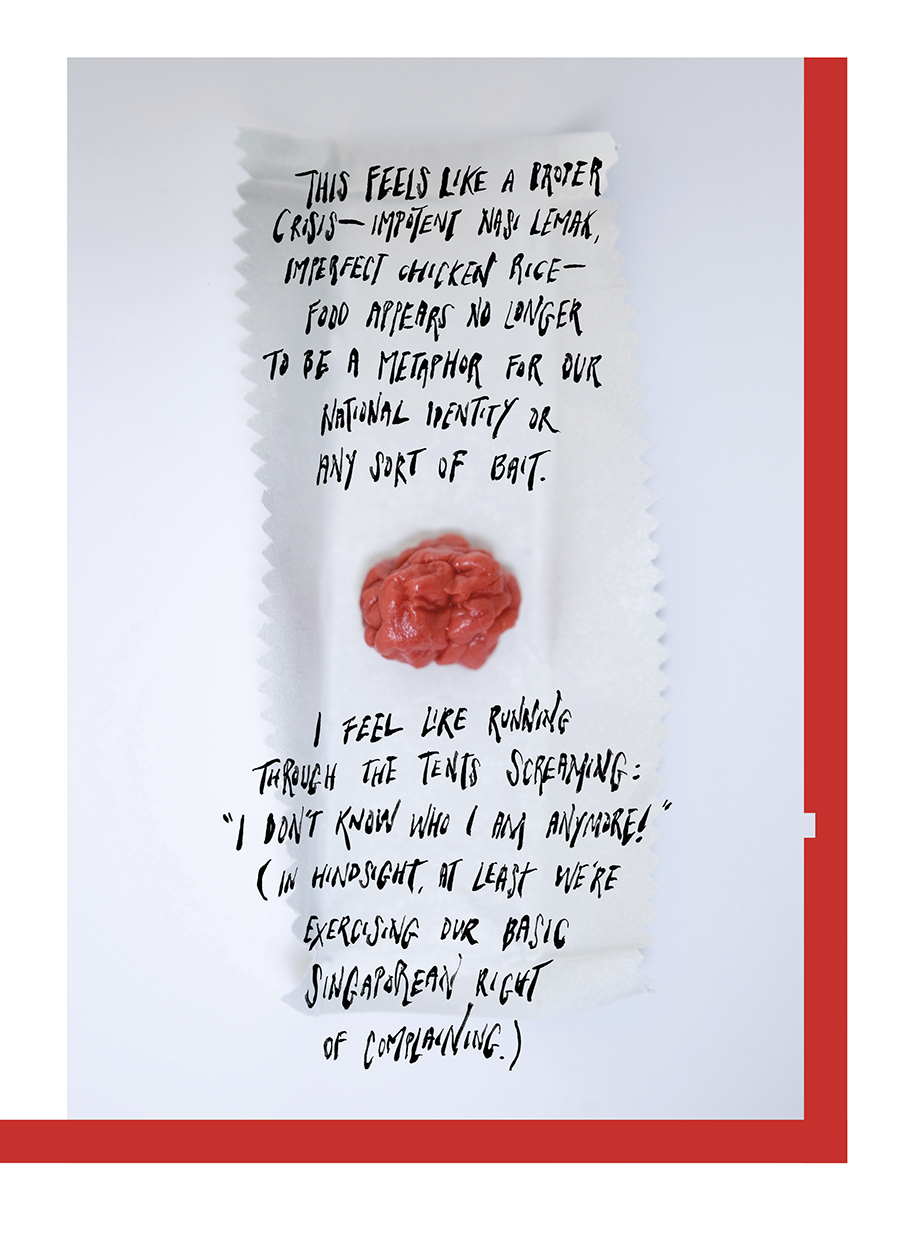 THIS FEELS LIKE A PROPER
CRISIS—IMPOTENT NASI LEMAK,
IMPERFECT CHICKEN RICE—
FOOD APPEARS NO LONGER
TO BE A METAPHOR FOR OUR
NATIONAL IDENTITY OR
ANY SORT OF BAIT.
I FEEL LIKE RUNNING
THROUGH THE TENTS SCREAMING:
“I DON'T KNOW WHO I AM ANYMORE!”
(IN HINDSIGHT, AT LEAST WE'RE
EXERCISING OUR BASIC
SINGAPOREAN RIGHT
OF COMPLAINING.)